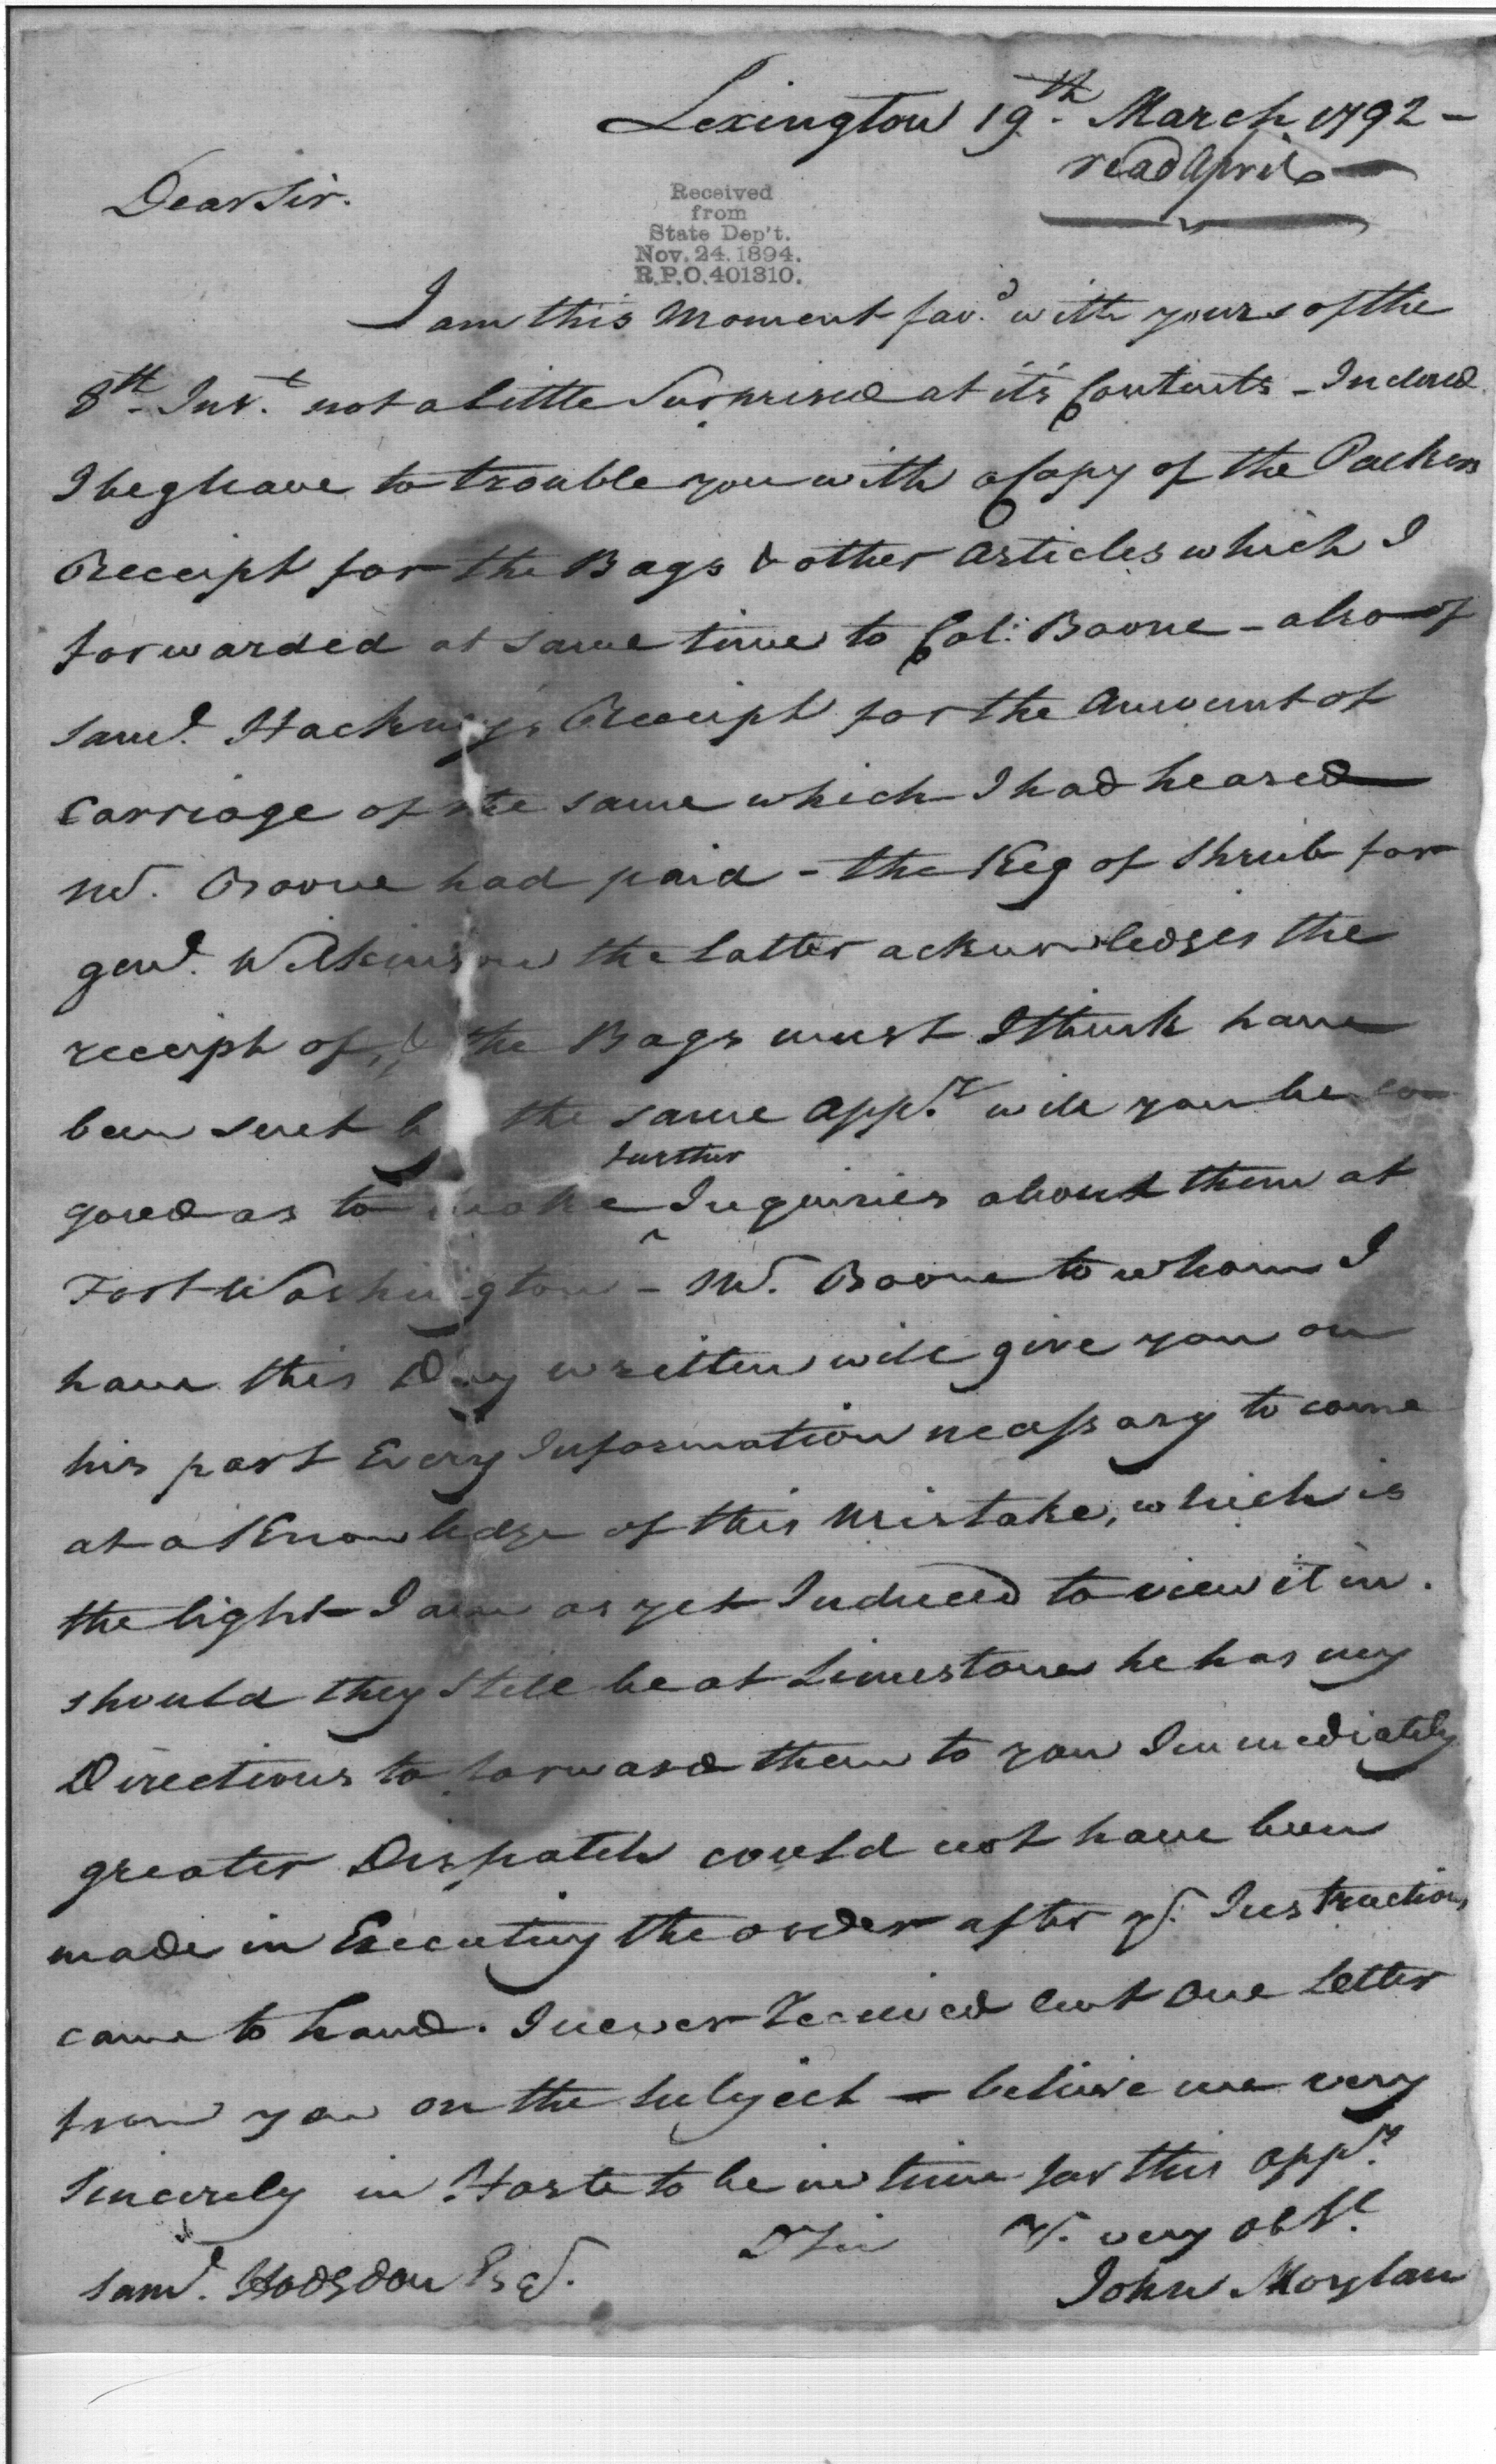 Lexington 19th March 1792 -
read April
Dear Sir.
Received
from
State Dep't.
Nov. 24. 1894.
R.P.O. 401310.
I am this Moment fav.d with yours of the
8th Inst. not a little Surprised at it's Contents - Indeed
I beg leave to trouble you with a Copy of the Packers
Receipt for the Bags & other articles which I
forwarded at same time to Col: Boone - also of
Saml. Hackney's Receipt for the Amount of
Carriage of the same which I had heared
Mr. Boone had paid - the Keg of Shrub for
genl. Wilkinson the latter acknowledges the
receipt of, & the Bags must I think have
been sent by the same oppy. will you be so
further
good as to make ^ Inquiries about them at
Fort Washington - Mr. Boone to whom I
have this Day written will give you on
his part Every Information necessary to come
at a Knowledge of this Mistake, which is
the light I am as yet Induced to view it in.
should they still be at Limestone he has my
Directions to forward them to you Immediately
greater Dispatch could not have been
made in Executing the order after yr. Instructions
came to hand. I never Received but one Letter
from you on the subject - believe me very
sincerely in Haste to be in time for this oppy.
D Sir Yr. very obt.
Saml. Hodgdon Esqr.
John Moylan